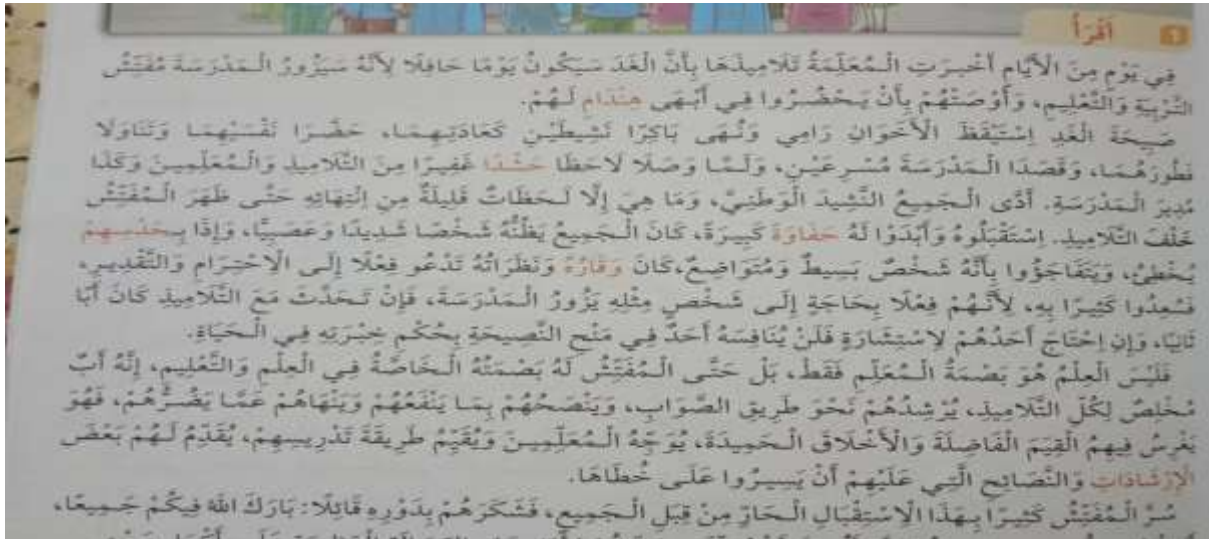 1 أَقْرَأُ
فِي يَوْمٍ مِنَ الْأَيَّامِ أَخْبَرَتِ الْمُعَلِّمَةُ تَلَامِيذَهَا بِأَنَّ الْغَدَ سَيَكُونُ يَوْمًا حَافِلًا لِأَنَّهُ سَيَزُورُ الْمَدْرَسَةَ مُفَتِّشُ
التَّرْبِيَةِ وَالتَّعْلِيمِ، وَأَوْصَتْهُمْ بِأَنْ يَحْضُرُوا فِي أَبْهَى هِنْدَامٍ لَهُمْ.
صَبِيحَةَ الْغَدِ اِسْتَيْقَظَ الْأَخَوَانِ رَامِي وَنُهَى بَاكِرًا نَشِيطَيْنِ كَعَادَتِهِمَا، حَضَّرَا نَفْسَيْهِمَا وَتَنَاوَلَا
فَطُورَهُمَا، وَقَصَدَا الْمَدْرَسَةَ مُسْرِعَيْنِ، وَلَمَّا وَصَلَا لَاحَظَا حَشْدًا غَفِيرًا مِنَ التَّلَامِيذِ وَالْمُعَلِّمِينَ وَكَذَا
مُدِيرَ الْمَدْرَسَةِ. أَدَّى الْجَمِيعُ النَّشِيدَ الْوَطَنِيَّ، وَمَا هِيَ إِلَّا لَحَظَاتٌ قَلِيلَةٌ مِنِ اِنْتِهَائِهِ حَتَّى ظَهَرَ الْمُفَتِّشُ
خَلْفَ التَّلَامِيذِ. اِسْتَقْبَلُوهُ وَأَبْدَوْا لَهُ حَفَاوَةً كَبِيرَةً، كَانَ الْجَمِيعُ يَظُنُّهُ شَخْصًا شَدِيدًا وَعَصَبِيًّا، وَإِذَا بِحَدْسِهِمْ
يُخْطِئُ، وَيَتَفَاجَؤُوا بِأَنَّهُ شَخْصٌ بَسِيطٌ وَمُتَوَاضِعٌ،كَانَ وَقَارُهُ وَنَظَرَاتُهُ تَدْعُو فِعْلًا إِلَى الْاِحْتِرَامِ وَالتَّقْدِيرِ،
فَسُعِدُوا كَثِيرًا بِهِ، لِأَنَّهُمْ فِعْلًا بِحَاجَةٍ إِلَى شَخْصٍ مِثْلِهِ يَزُورُ الْمَدْرَسَةَ، فَإِنْ تَحَدَّثَ مَعَ التَّلَامِيذِ كَانَ أَبًا
ثَانِيًا، وَإِنِ اِحْتَاجَ أَحَدُهُمْ لِاسْتِشَارَةٍ فَلَنْ يُنَافِسَهُ أَحَدٌ فِي مَنْحِ النَّصِيحَةِ بِحُكْمِ خِبْرَتِهِ فِي الْحَيَاةِ.
فَلَيْسَ الْعِلْمُ هُوَ بَصْمَةُ الْمُعَلِّمِ فَقَطْ، بَلْ حَتَّى الْمُفَتِّشُ لَهُ بَصْمَتُهُ الْخَاصَّةُ فِي الْعِلْمِ وَالتَّعْلِيمِ، إِنَّهُ أَبٌ
مُخْلِصٌ لِكُلِّ التَّلَامِيذِ، يُرْشِدُهُمْ نَحْوَ طَرِيقِ الصَّوَابِ، وَيَنْصَحُهُمْ بِمَا يَنْفَعُهُمْ وَيَنْهَاهُمْ عَمَّا يَضُرُّهُمْ، فَهُوَ
يَغْرِسُ فِيهِمُ الْقِيَمَ الْفَاضِلَةَ وَالْأَخْلَاقَ الْحَمِيدَةَ، يُوَجِّهُ الْمُعَلِّمِينَ وَيُقَيِّمُ طَرِيقَةَ تَدْرِيسِهِمْ، يُقَدِّمُ لَهُمْ بَعْضَ
الْإِرْشَادَاتِ وَالنَّصَائِحِ الَّتِي عَلَيْهِمْ أَنْ يَسِيرُوا عَلَى خُطَاهَا.
سُرَّ الْمُفَتِّشُ كَثِيرًا بِهَذَا الْاِسْتِقْبَالِ الْحَارِّ مِنْ قِبَلِ الْجَمِيعِ، فَشَكَرَهُمْ بِدَوْرِهِ قَائِلًا: بَارَكَ اللهُ فِيكُمْ جَمِيعًا،